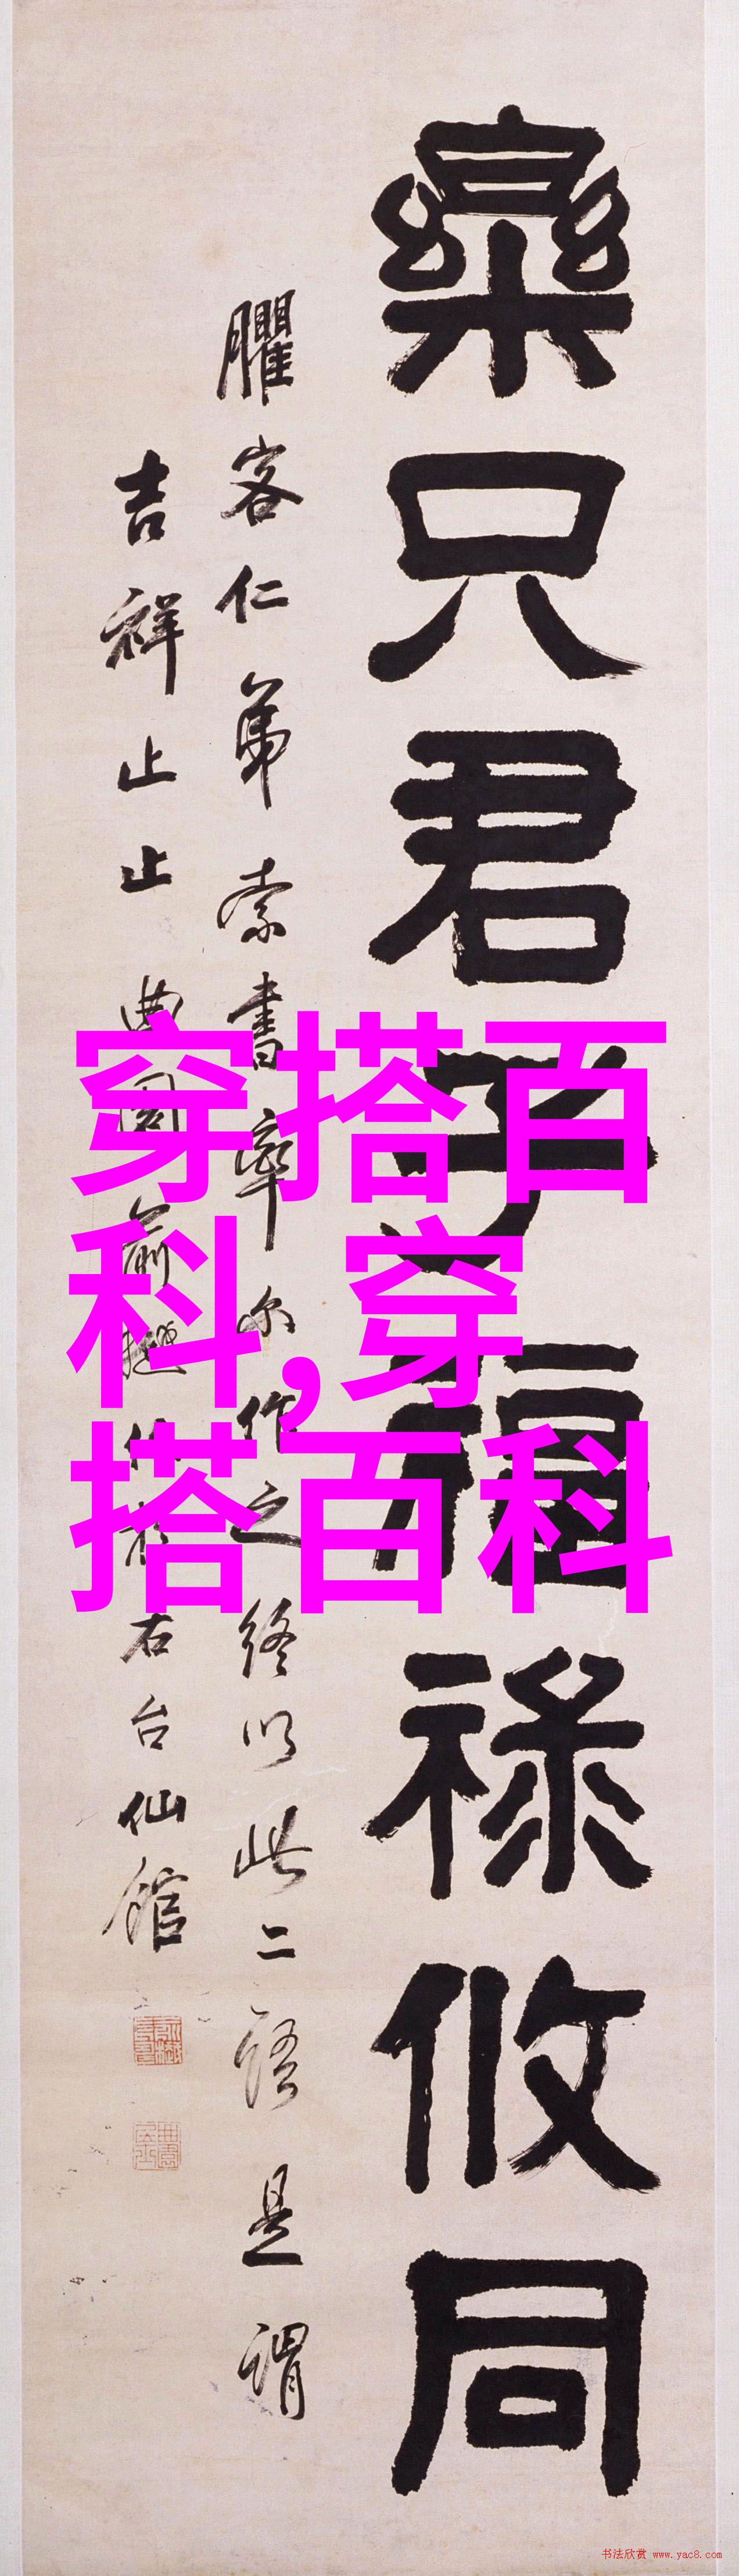 樂只君子福祿攸同
臞客仁弟索書率尔作之終以此二語是謂
吉祥止止曲園俞樾作於右台仙館
穿搭百
科,穿
搭百科
书法欣赏 www.yac8.com